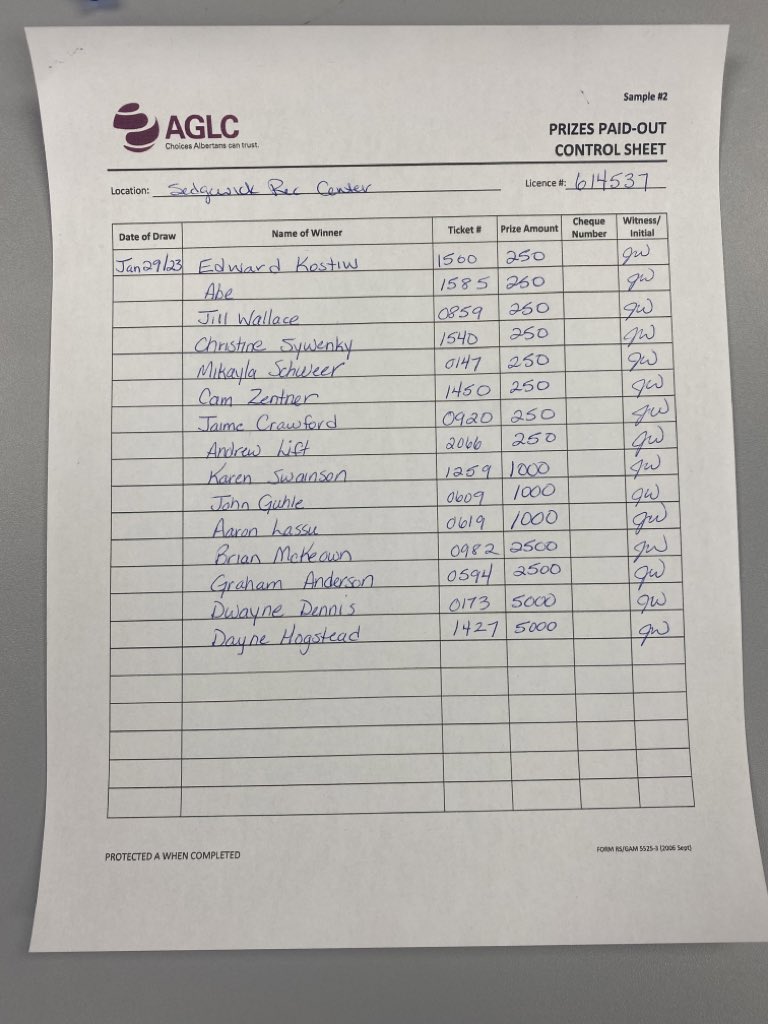 Sample #2
AGLC
Choices Albertans can trust.
PRIZES PAID-OUT
CONTROL SHEET
Location: Sedgewick Rec Center Licence #: 614537
Date of Draw Name of Winner Ticket # Prize Amount Cheque Number Witness/ Initial
Jan 29/23 Edward Kostiw 1560 250 JW
Abe 1585 250 JW
Jill Wallace 0859 250 JW
Christine Sywenky 1540 250 JW
Mikayla Schweer 0147 250 JW
Cam Zentner 1450 250 JW
Jaime Crawford 0920 250 JW
Andrew Lift 2066 250 JW
Karen Swainson 1259 1000 JW
John Guhle 0609 1000 JW
Aaron Lassu 0619 1000 JW
Brian McKeown 0982 2500 JW
Graham Anderson 0594 2500 JW
Dwayne Dennis 0173 5000 JW
Dayne Hogstead 1427 5000 JW
PROTECTED A WHEN COMPLETED
FORM RS/GAM 5525-3 (2006 Sept)